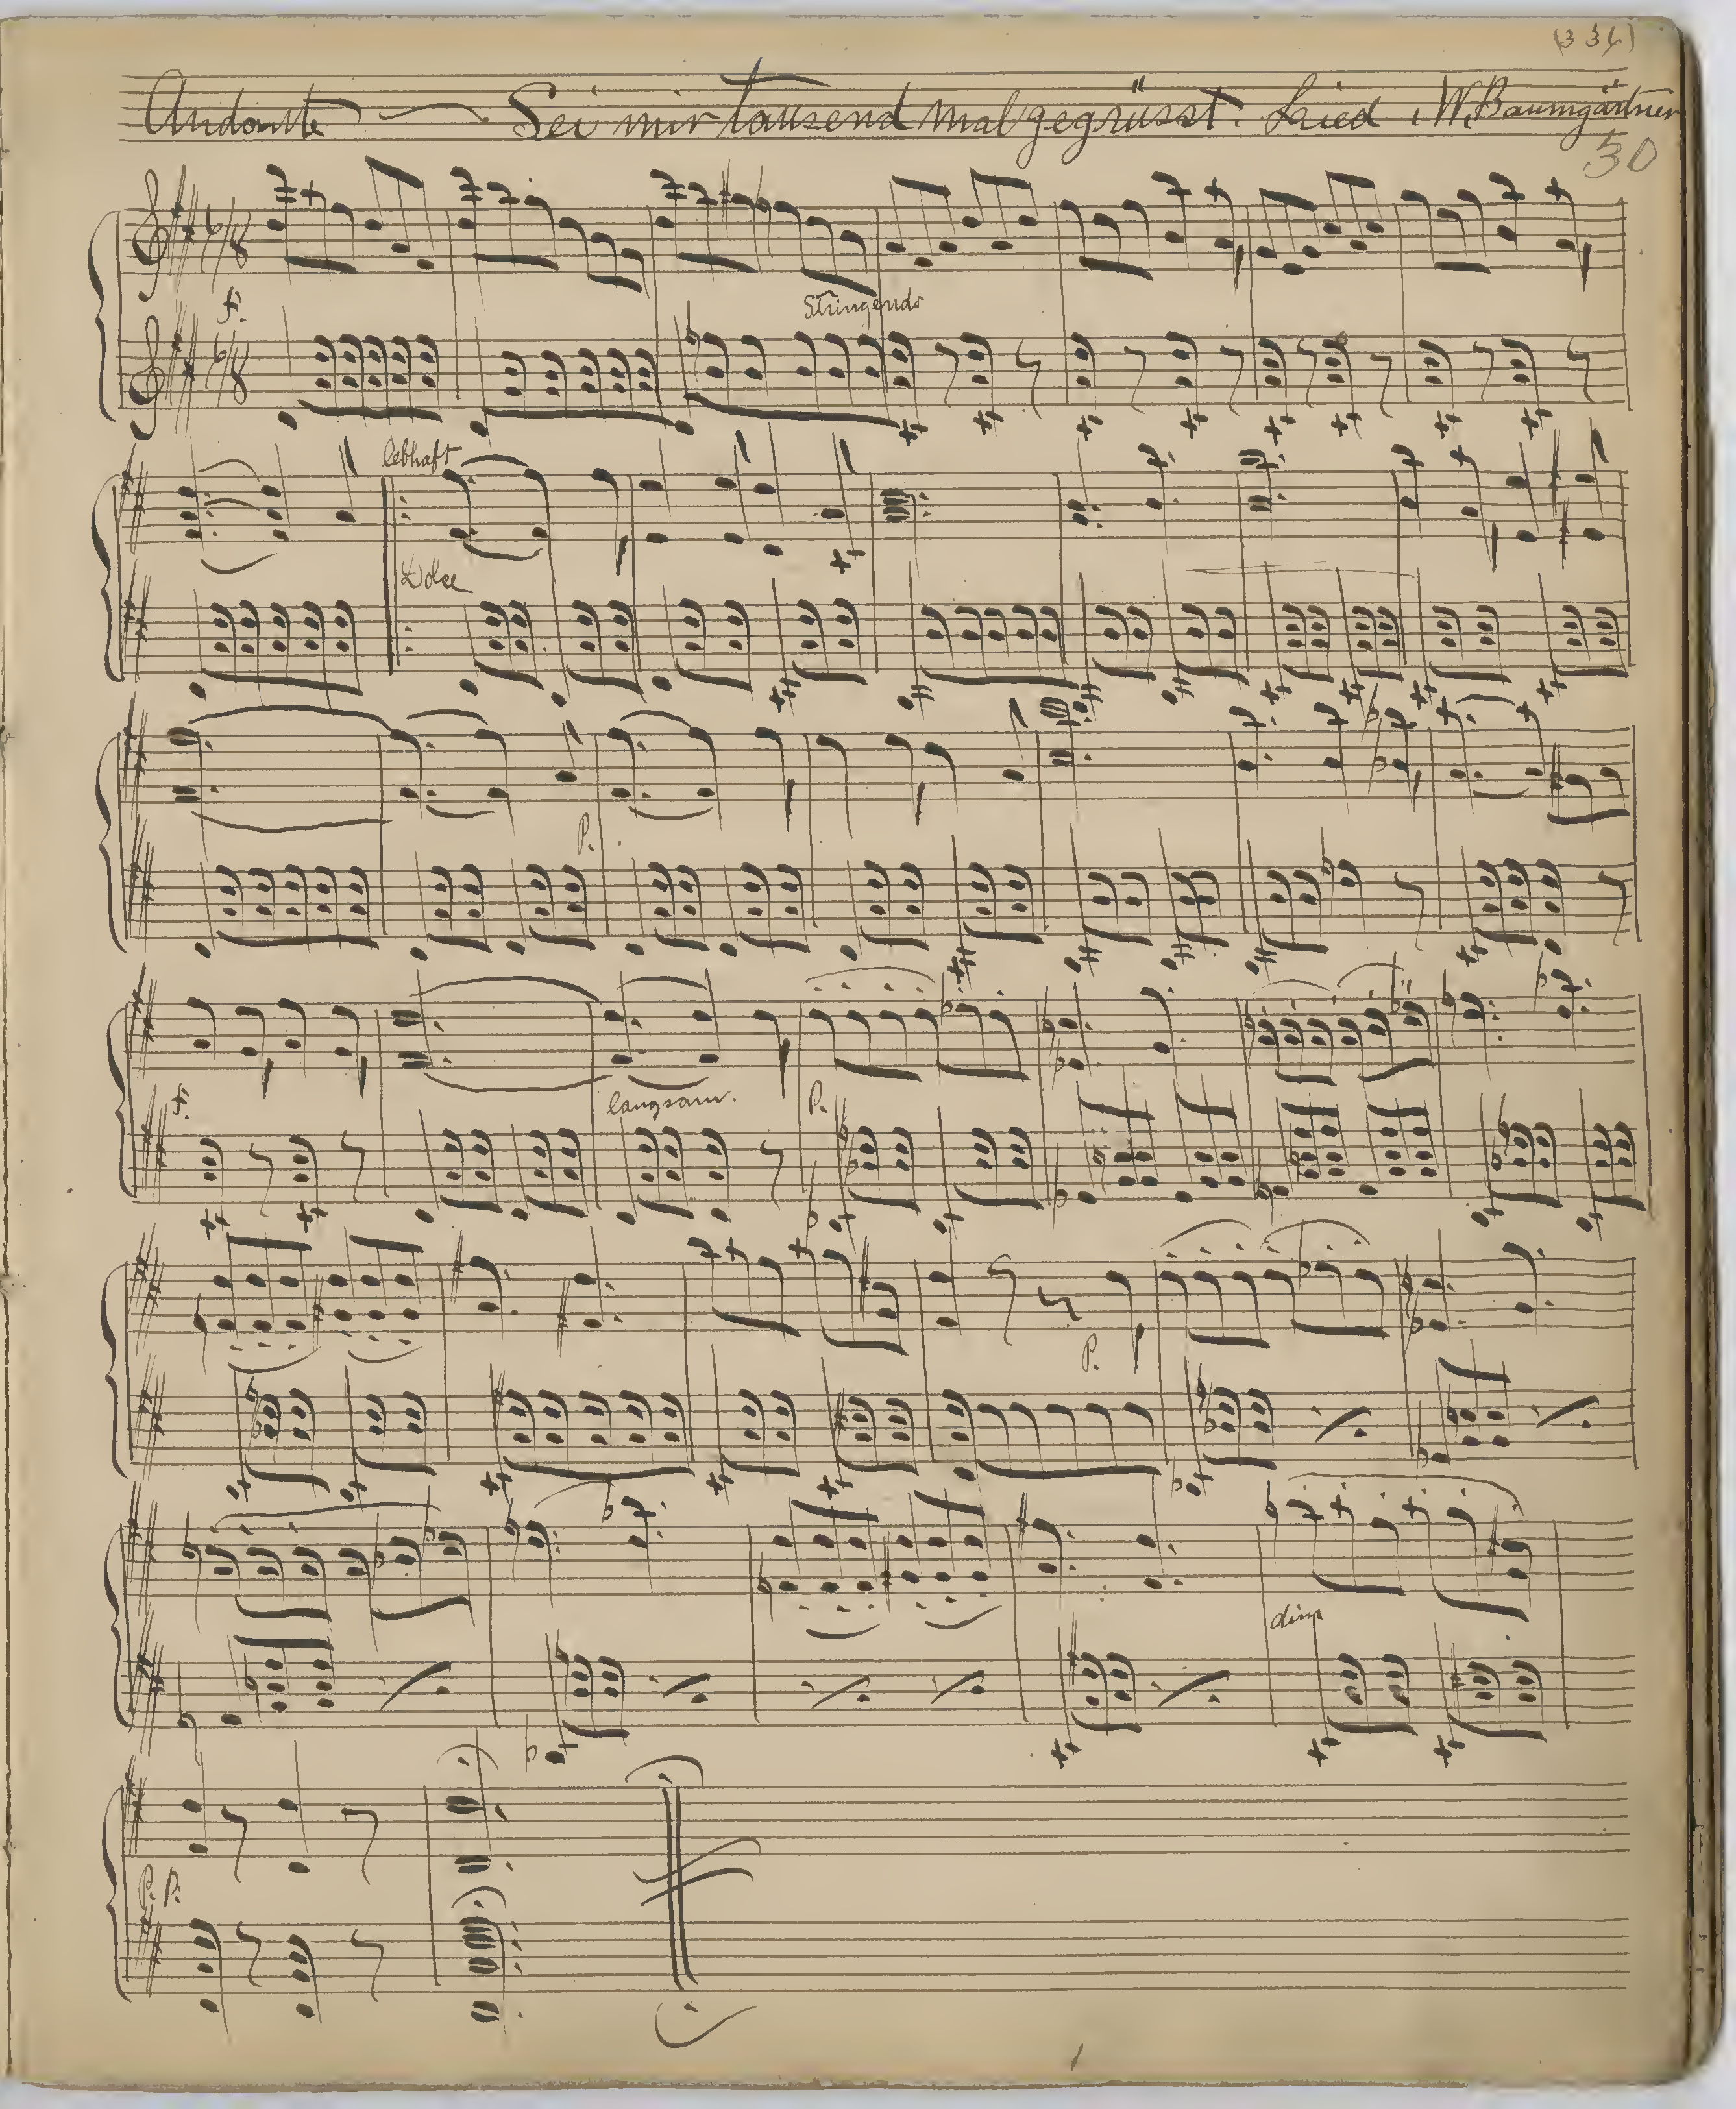 (334)
Andante — Sei mir tausend mal gegrüsst. Lied . W. Baumgärtner
50
6/8
f.
Stringendo
6/8
lebhaft
Dolce
P.
f.
langsam.
P.
P.
dim
P. P.